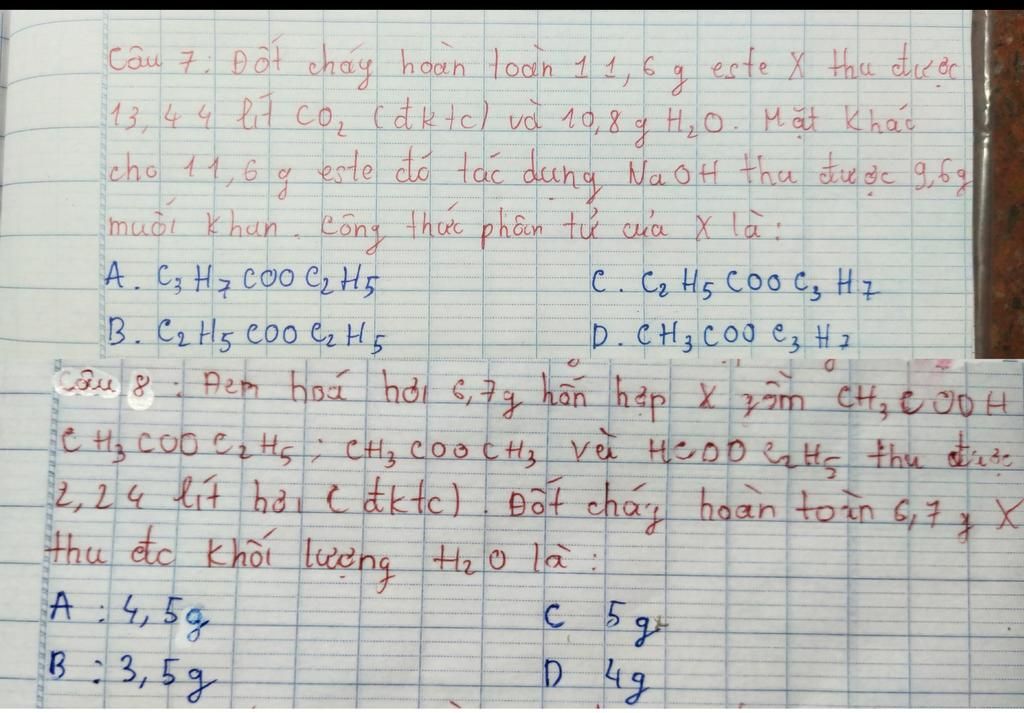 Câu 7: Đốt cháy hoàn toàn 11,6 g este X thu được
13,44 lít CO₂ (đktc) và 10,8g H₂O. Mặt khác
cho 11,6 g este đó tác dụng NaOH thu được 9,6g
muối khan. Công thức phân tử của X là:
A. C₃H₇COOC₂H₅ C. C₂H₅COOC₃H₇
B. C₂H₅COOC₂H₅ D. CH₃COOC₃H₇
Câu 8: Đem hoá hơi 6,7g hỗn hợp X gồm CH₃COOH
CH₃COOC₂H₅; CH₃COOCH₃ và HCOOC₂H₅ thu được
2,24 lít hơi (đktc). Đốt cháy hoàn toàn 6,7g X
thu đc khối lượng H₂O là:
A: 4,5g C 5g
B: 3,5g D 4g